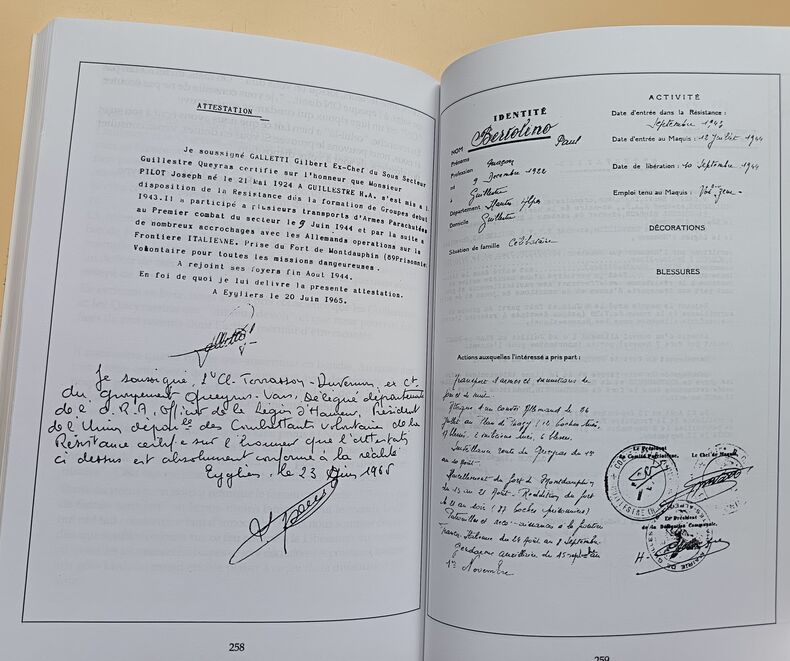 ATTESTATION
Je soussigné GALLETTI Gilbert Ex-Chef du Sous Secteur
Guillestre Queyras certifie sur l'honneur que Monsieur
PILOT Joseph né le 21 Mai 1924 A GUILLESTRE H.A. s'est mis a l
disposition de la Résistance dés la formation de Groupes debut
1943.Il a participé a plusieurs transports d'Armes Parachutées
au Premier combat du secteur le 9 Juin 1944 et par la suite a
de nombreux accrochages avec les Allemands operations sur la
Frontiere ITALIENNE. Prise du Fort de Montdauphin (89Prisonnie
Volontaire pour toutes les missions dangeureuses.
A rejoint ses foyers fin Aout 1944.
En foi de quoi je lui delivre la presente attestation.
A Eygliers le 20 Juin 1965.
Je soussigné, Lt Cl. Terrasson-Duvernon, ex ct.
du groupement Queyras-Vars, Délégué départemental
de l'O.R.A, Officier de la Légion d'Honneur, Président
de l'Union dépale des Combattants Volontaires de la
Résistance certifie sur l'honneur que l'attestation
ci dessus est absolument conforme à la réalité
Eygliers, le 23 Juin 1965
258
IDENTITÉ
NOM Bertolino
Prénoms Paul
Profession maçon
né 9 Décembre 1922
à Guillestre
Département Hautes Alpes
Domicile Guillestre
Situation de famille Célibataire
ACTIVITÉ
Date d'entrée dans la Résistance :
Septembre 1943
Date d'entrée au Maquis : 12 Juillet 1944
Date de libération : 10 Septembre 1944
Emploi tenu au Maquis :
DÉCORATIONS
BLESSURES
Actions auxquelles l'intéressé a pris part :
Transport d'armes et munitions de
jour et de nuit.
Attaque d'un convoi Allemand le
Juillet au Plan de / 12 boches tués,
blessés, 2 tués, 6 blessés.
Surveillance route du Queyras du 1er
au 10 Août.
Harcellement du fort de Montdauphin
du 13 au 21 Août. Reddition du fort
le 21 au soir ( boches prisonniers)
Patrouilles et reconnaissances à la frontière
Franco-Italienne du 24 Août au 8 Septembre
Gendarme auxiliaire du 15 septembre au
Novembre
Le Président
du Comité Patriotique,
Le Chef de Maquis,
Le Président
de la Délégation Communale,
259